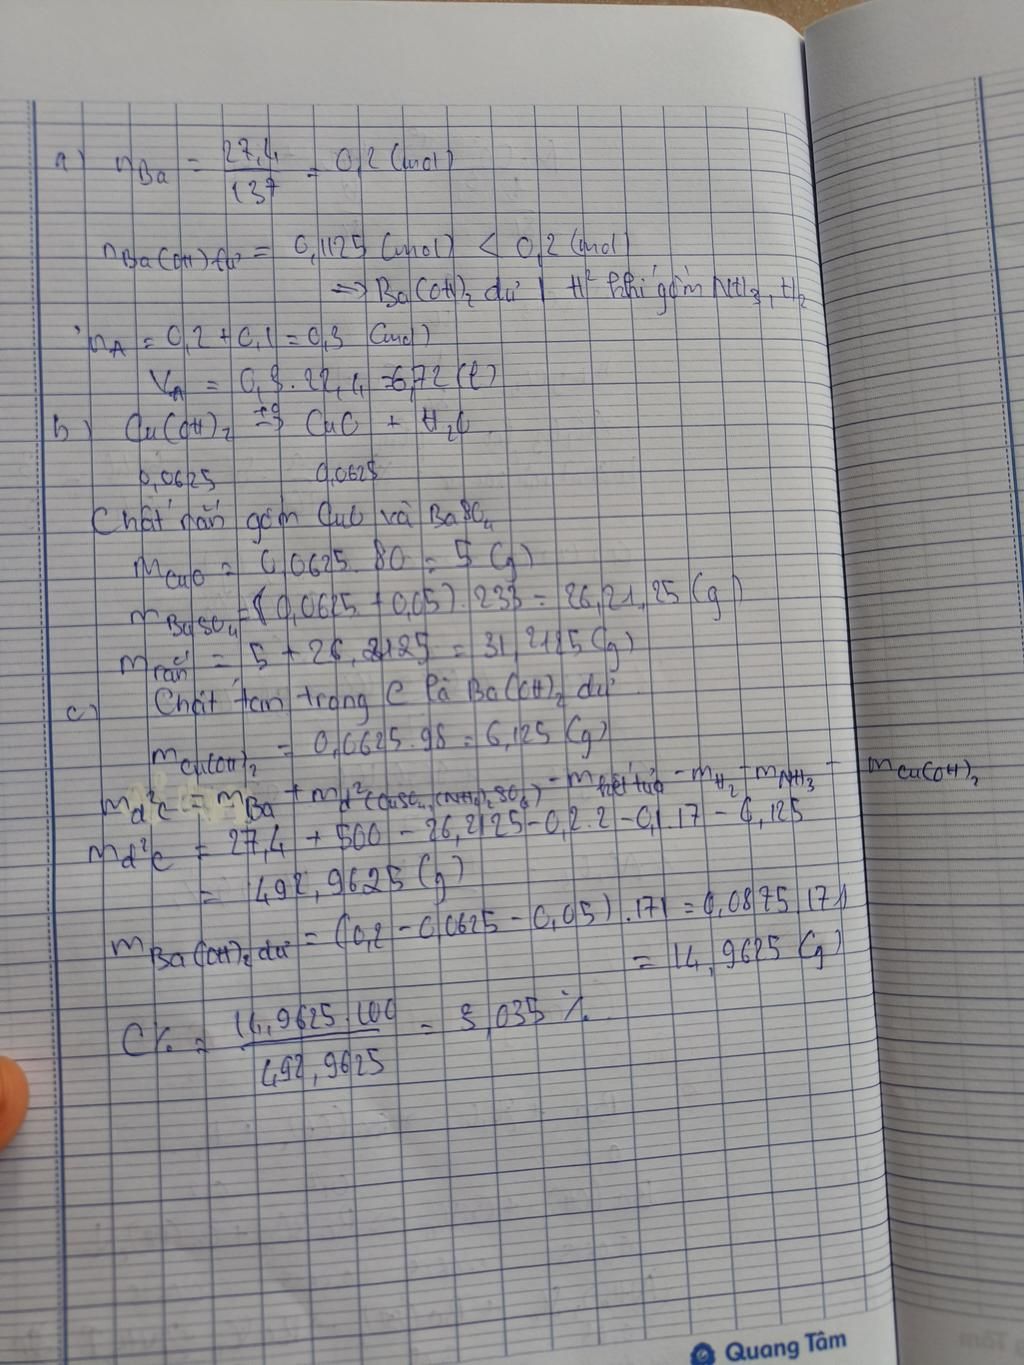 a) nBa = 27,4 / 137 = 0,2 (mol)
nBa(OH)2 tư = 0,1125 (mol) < 0,2 (mol)
=> Ba(OH)2 dư, H² khí gồm NH3, H2
nA = 0,2 + 0,1 = 0,3 (mol)
VA = 0,3 . 22,4 = 6,72 (l)
b) Cu(OH)2 t° => CuO + H2O
0,0625 0,0625
Chất rắn gồm CuO và BaSO4
mCuO = 0,0625 . 80 = 5 (g)
mBaSO4 = (0,0625 + 0,05) . 233 = 26,21,25 (g)
mrắn = 5 + 26,2125 = 31,2125 (g)
c) Chất tan trong C là Ba(OH)2 dư
mCu(OH)2 = 0,0625 . 98 = 6,125 (g)
md²C = mBa + md²(CuSO4, (NH4)2SO4) - mkết tủa - mH2 - mNH3 - mCu(OH)2
md²C = 27,4 + 500 - 26,2125 - 0,2 . 2 - 0,1 . 17 - 6,125
= 492,9625 (g)
mBa(OH)2 dư = (0,2 - 0,0625 - 0,05) . 171 = 0,0875 . 171
= 14,9625 (g)
C% = 14,9625 . 100 / 492,9625 = 3,035 %
Quang Tâm